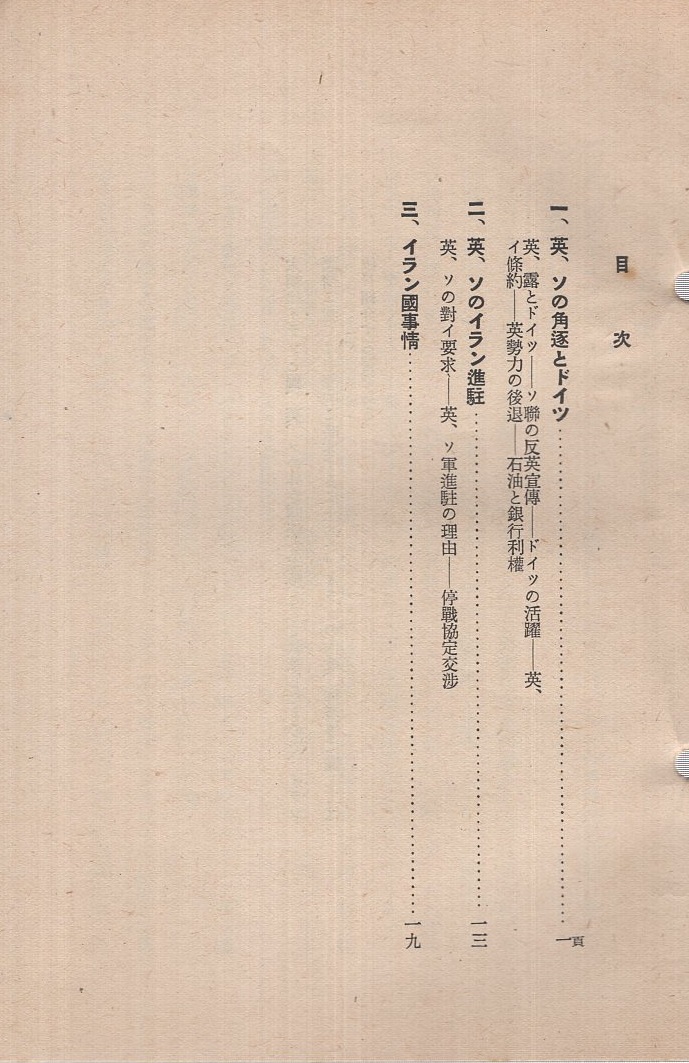 目次
一、英、ソの角逐とドイツ……一頁
英、露とドイツ――ソ聯の反英宣傳――ドイツの活躍――英、
イ條約――英勢力の後退――石油と銀行利權
二、英、ソのイラン進駐……一三
英、ソの對イ要求――英、ソ軍進駐の理由――停戰協定交涉
三、イラン國事情……一九